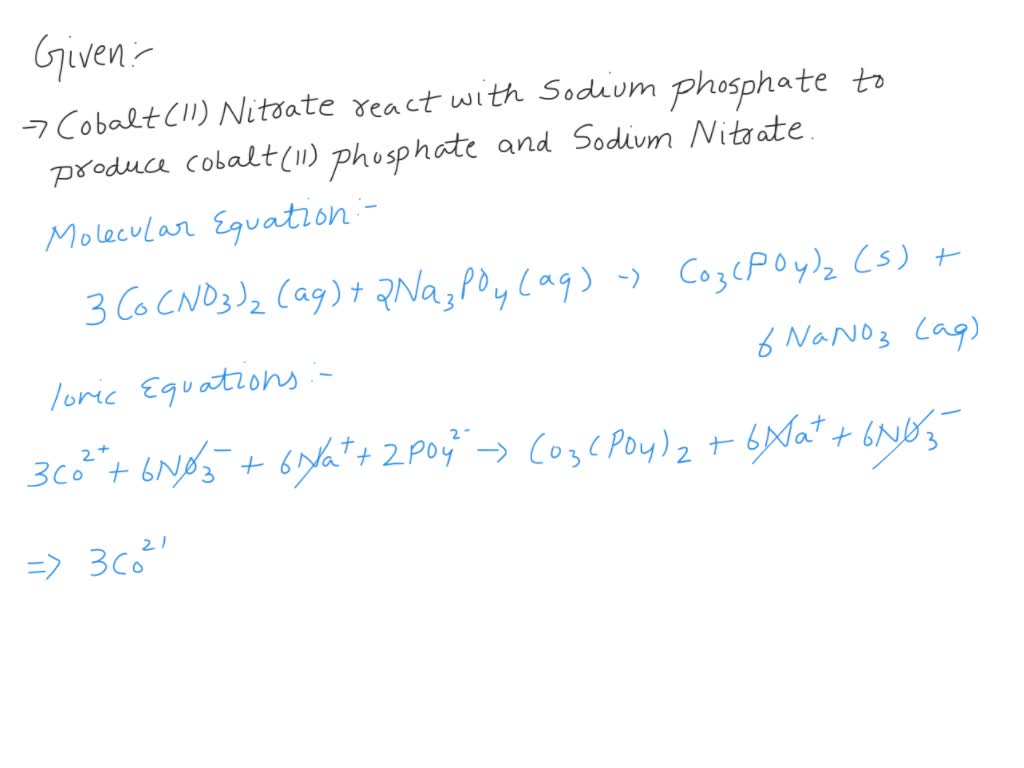 Given:-
→ Cobalt(II) Nitrate react with Sodium phosphate to
produce cobalt(II) phosphate and Sodium Nitrate.
Molecular Equation:-
3Co(NO₃)₂ (aq) + 2Na₃PO₄ (aq) → Co₃(PO₄)₂ (s) +
6 NaNO₃ (aq)
Ionic Equations:-
3Co²⁺ + 6NO₃⁻ + 6Na⁺ + 2PO₄²⁻ → Co₃(PO₄)₂ + 6Na⁺ + 6NO₃⁻
⇒ 3Co²⁺